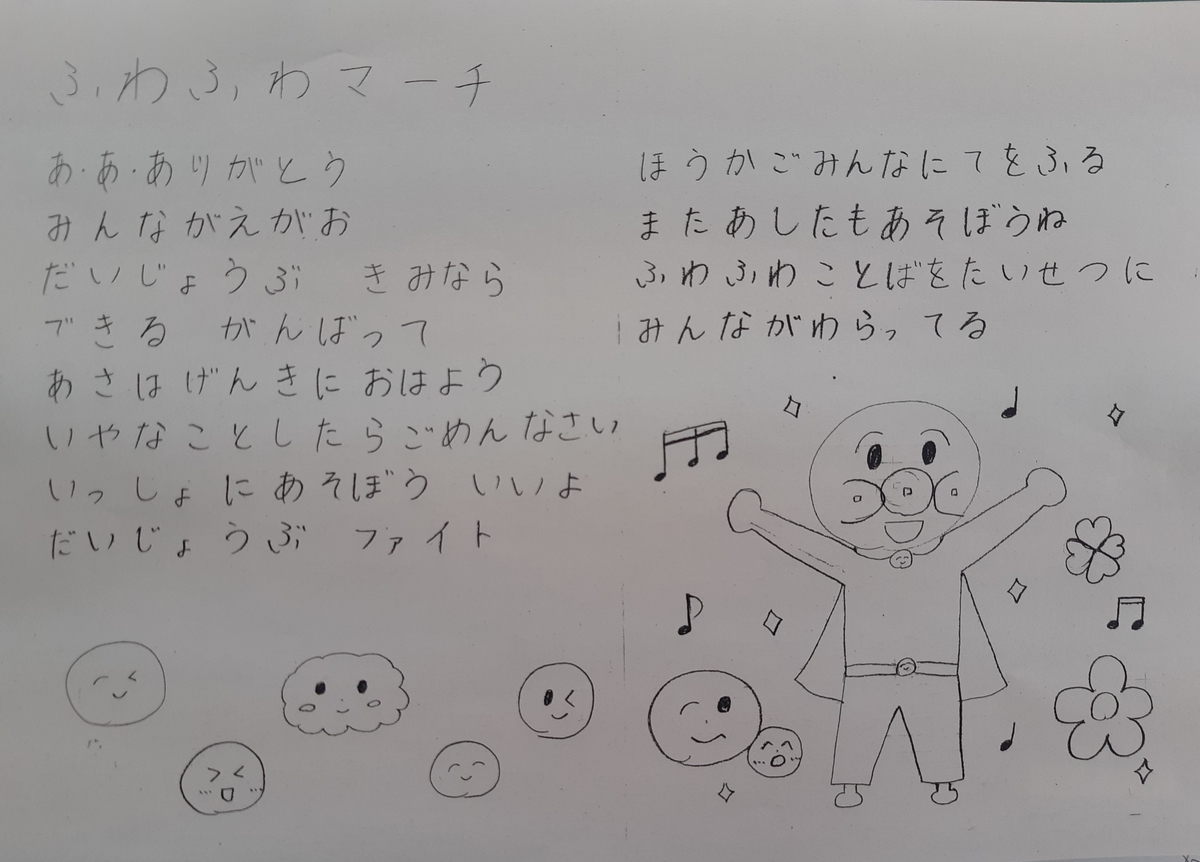 ふわふわマーチ
あ・あ・ありがとう
みんながえがお
だいじょうぶ　きみなら
できる　がんばって
あさはげんきに おはよう
いやなことしたらごめんなさい
いっしょ にあそぼう　いいよ
だいじょうぶ　ファイト
ほうかごみんなにてをふる
またあしたもあそぼうね
ふわふわことばをたいせつに
みんながわらってる